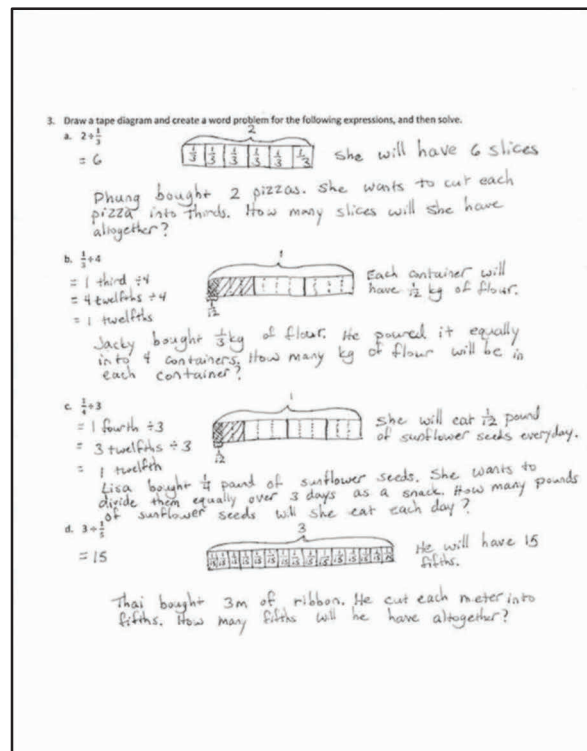 3. Draw a tape diagram and create a word problem for the following expressions, and then solve.
a. 2÷1/3
2
= 6
1/3 1/3 1/3 1/3 1/3 1/3
She will have 6 slices
Phung bought 2 pizzas. She wants to cut each
pizza into thirds. How many slices will she have
altogether?
b. 1/3÷4
1
= 1 third ÷4
= 4 twelfths ÷4
= 1 twelfths
1/12
Each container will
have 1/12 kg of flour.
Jacky bought 1/3 kg of flour. He poured it equally
into 4 containers. How many kg of flour will be in
each container?
c. 1/4÷3
1
= 1 fourth ÷3
= 3 twelfths ÷3
= 1 twelfth
1/12
She will eat 1/12 pound
of sunflower seeds everyday.
Lisa bought 1/4 pound of sunflower seeds. She wants to
divide them equally over 3 days as a snack. How many pounds
of sunflower seeds will she eat each day?
d. 3÷1/5
3
= 15
He will have 15
fifths.
Thai bought 3m of ribbon. He cut each meter into
fifths. How many fifths will he have altogether?